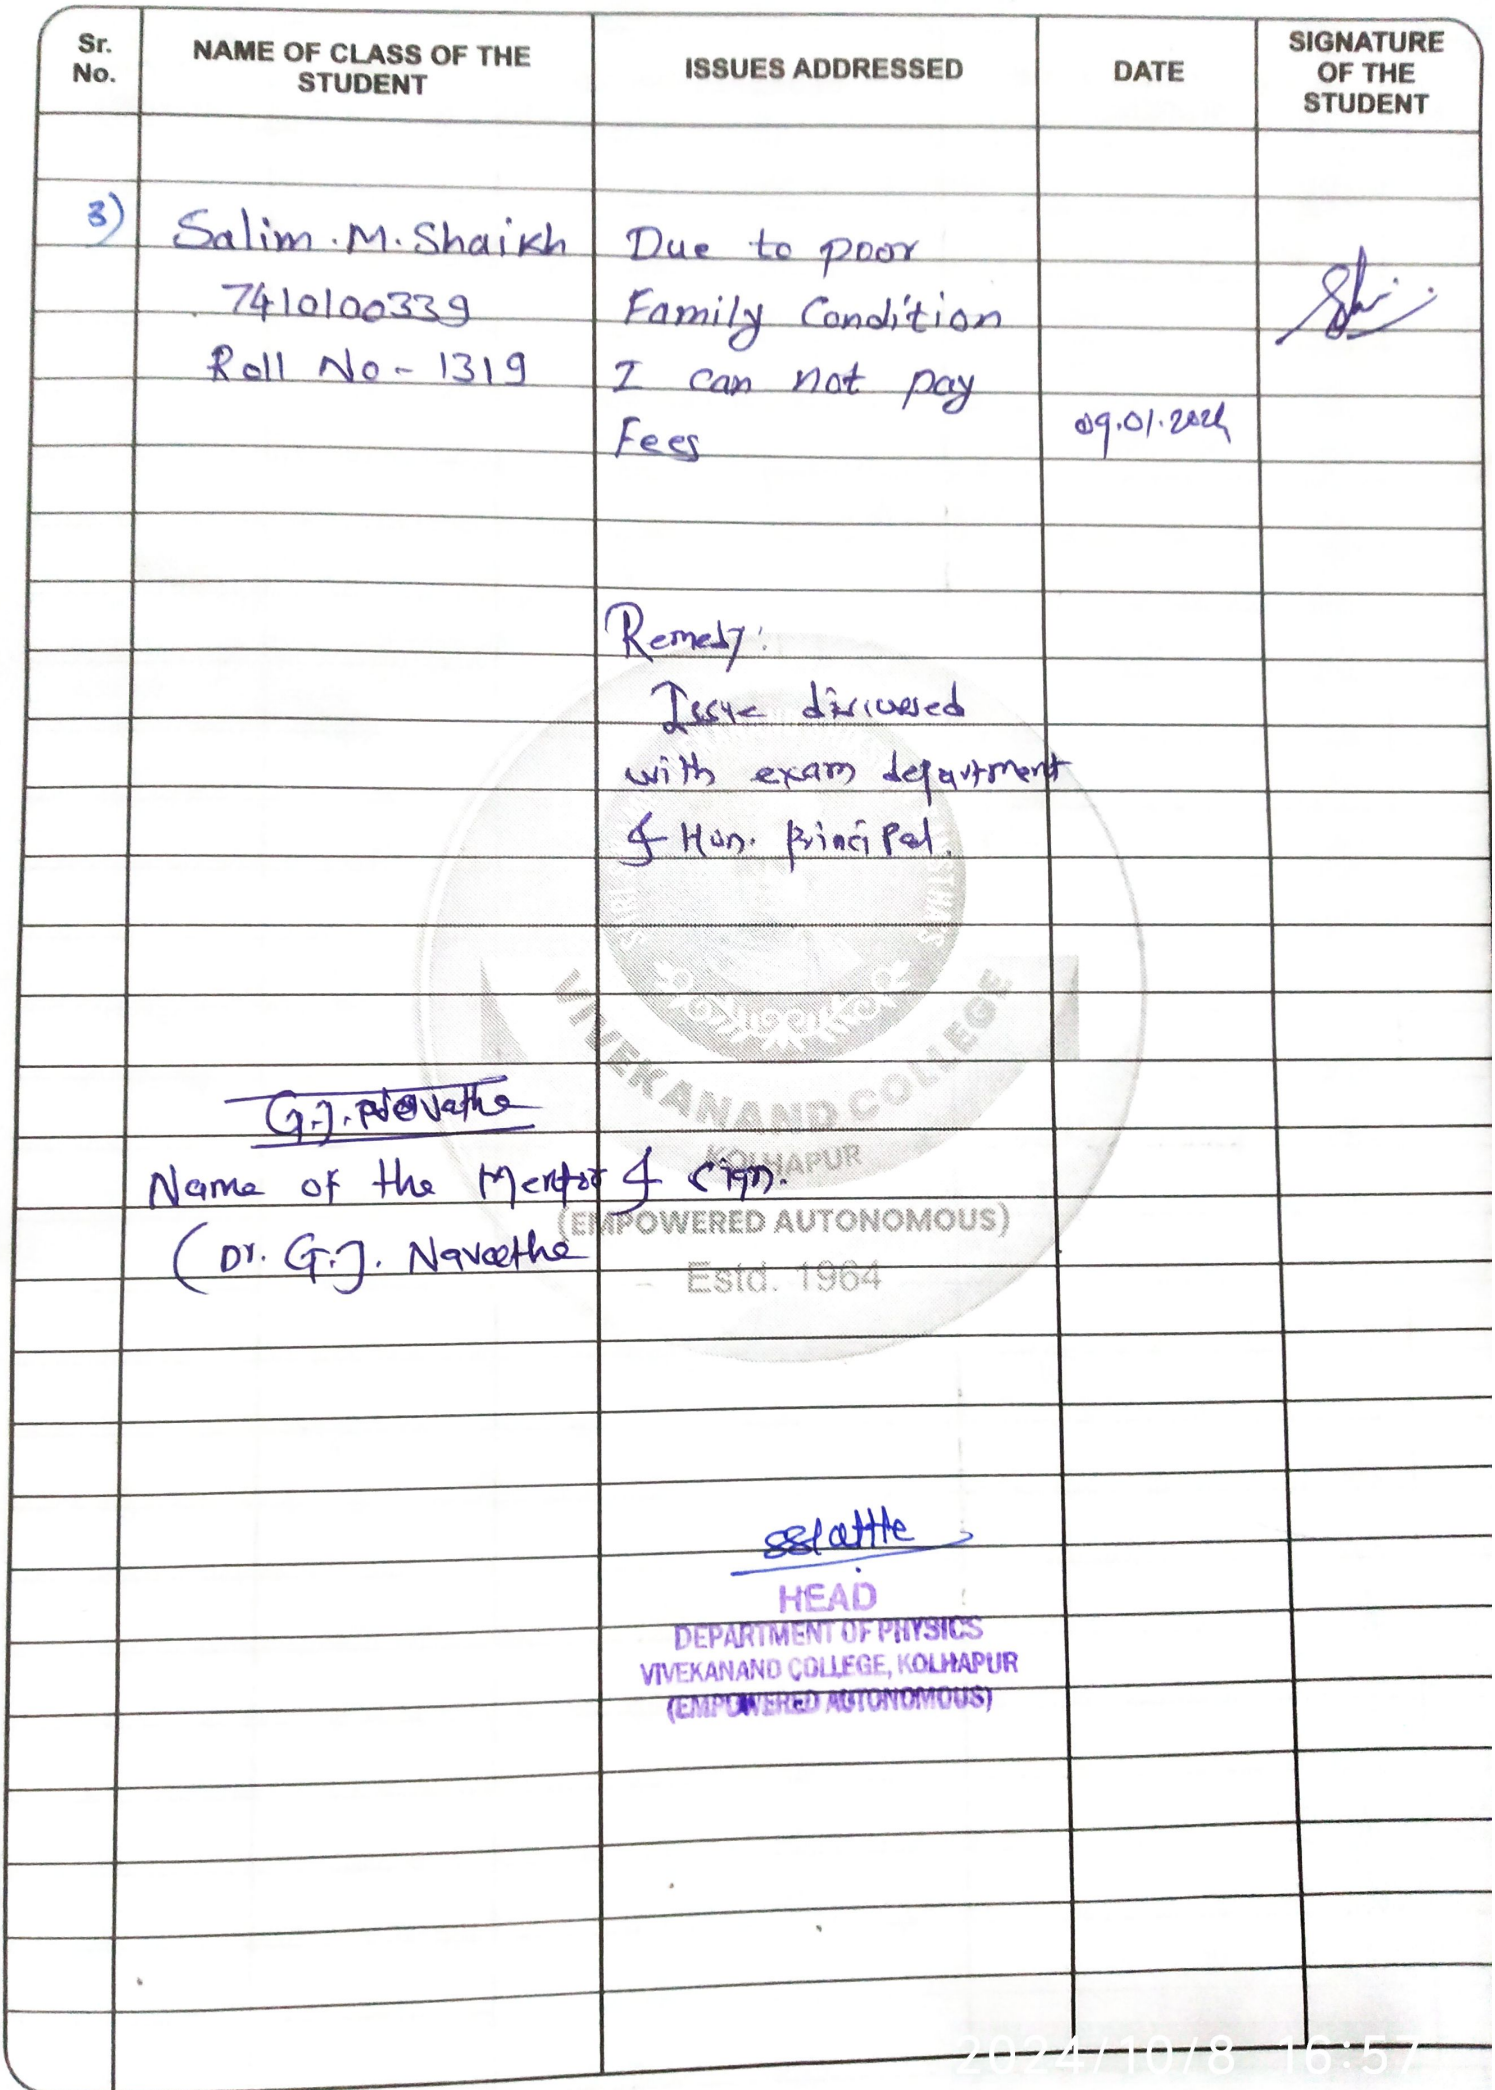 Sr. No.
NAME OF CLASS OF THE STUDENT
ISSUES ADDRESSED
DATE
SIGNATURE OF THE STUDENT
3)
Salim.M.Shaikh
7410100339
Roll No - 1319
Due to poor
Family Condition
I can not pay
Fees
09.01.2024
Remedy:
Issue discussed
with exam department
& Hon. principal.
G.J. Navathe
Name of the Mentor & Sign.
(Dr. G.J. Navathe
VIVEKANAND COLLEGE
KOLHAPUR
(EMPOWERED AUTONOMOUS)
Estd. 1964
HEAD
DEPARTMENT OF PHYSICS
VIVEKANAND COLLEGE, KOLHAPUR
(EMPOWERED AUTONOMOUS)
2024/10/8 16:57